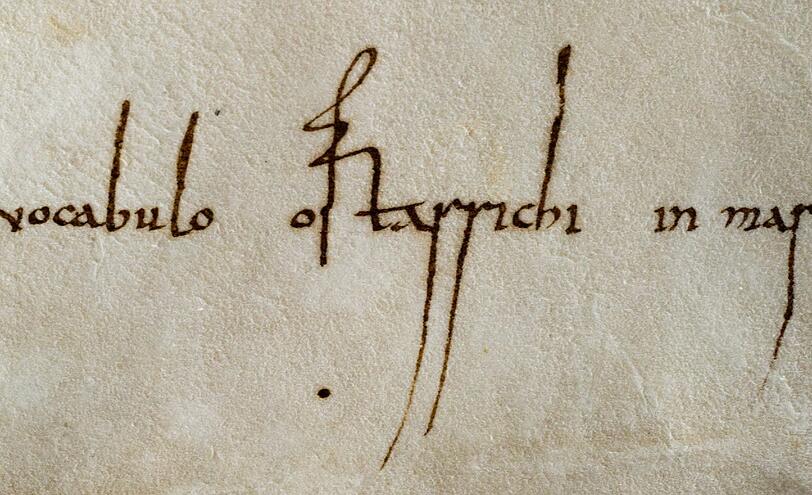 vocabulo ostarrichi in mar